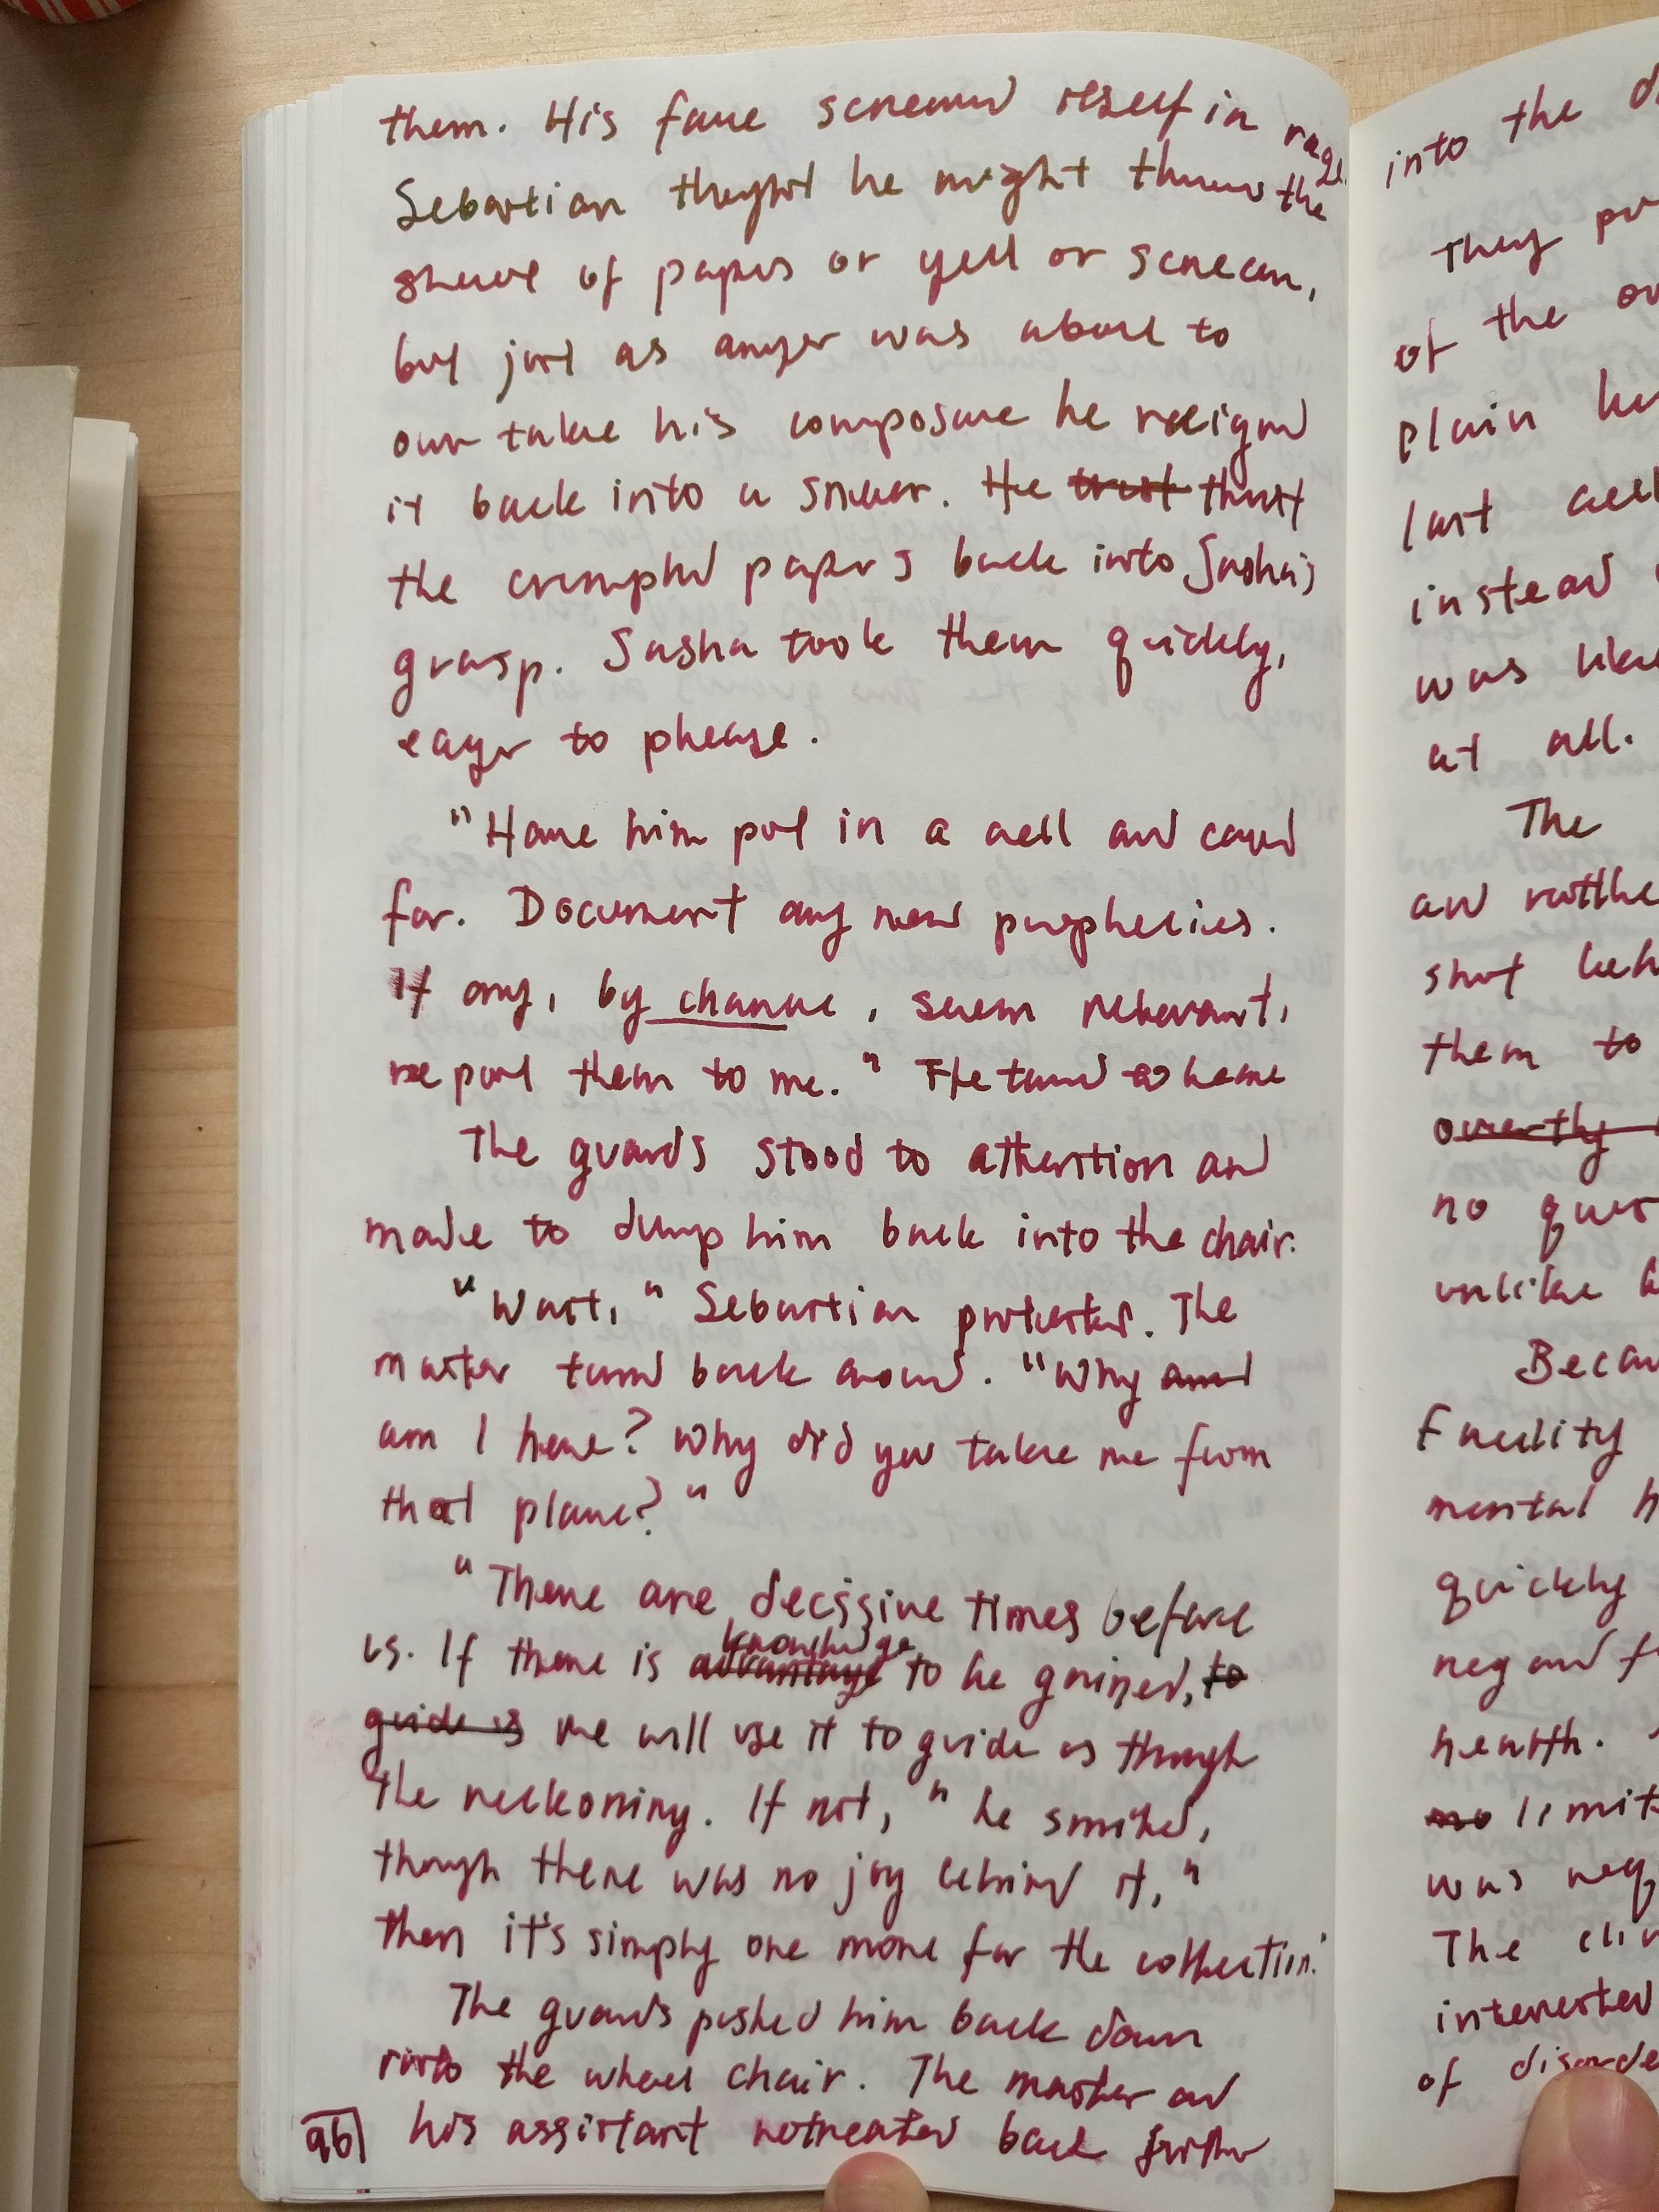 them. His face screwed itself in rage.
Sebastian thought he might throw the
sheaf of papers or yell or scream,
but just as anger was about to
over take his composure he reeigned
it back into a sneer. He trust thrust
the crumpled papers back into Sasha's
grasp. Sasha took them quickly,
eager to please.
"Have him put in a cell and cared
for. Document any new prophecies.
If any, by chance, seem relevant,
report them to me." He turned to leave
The guards stood to attention and
made to dump him back into the chair.
"Wait," Sebastian protested. The
master turned back around. "Why and
am I here? Why did you take me from
that place?"
"There are decisive times before
us. If there is advantage knowledge to be gained, to
guide us we will use it to guide us through
the reckoning. If not," he smiled,
though there was no joy behind it, "
then it's simply one more for the collection."
The guards pushed him back down
into the wheel chair. The master and
96 his assistant retreated back further
into the
They
of the
plain
last cell
instead
was like
at all.
The
and
shut beh
them to
overtly
no ques
unlike
Becau
Facility
mental h
quickly
neg and
health.
no limit
was req
The clin
interested
of disorde